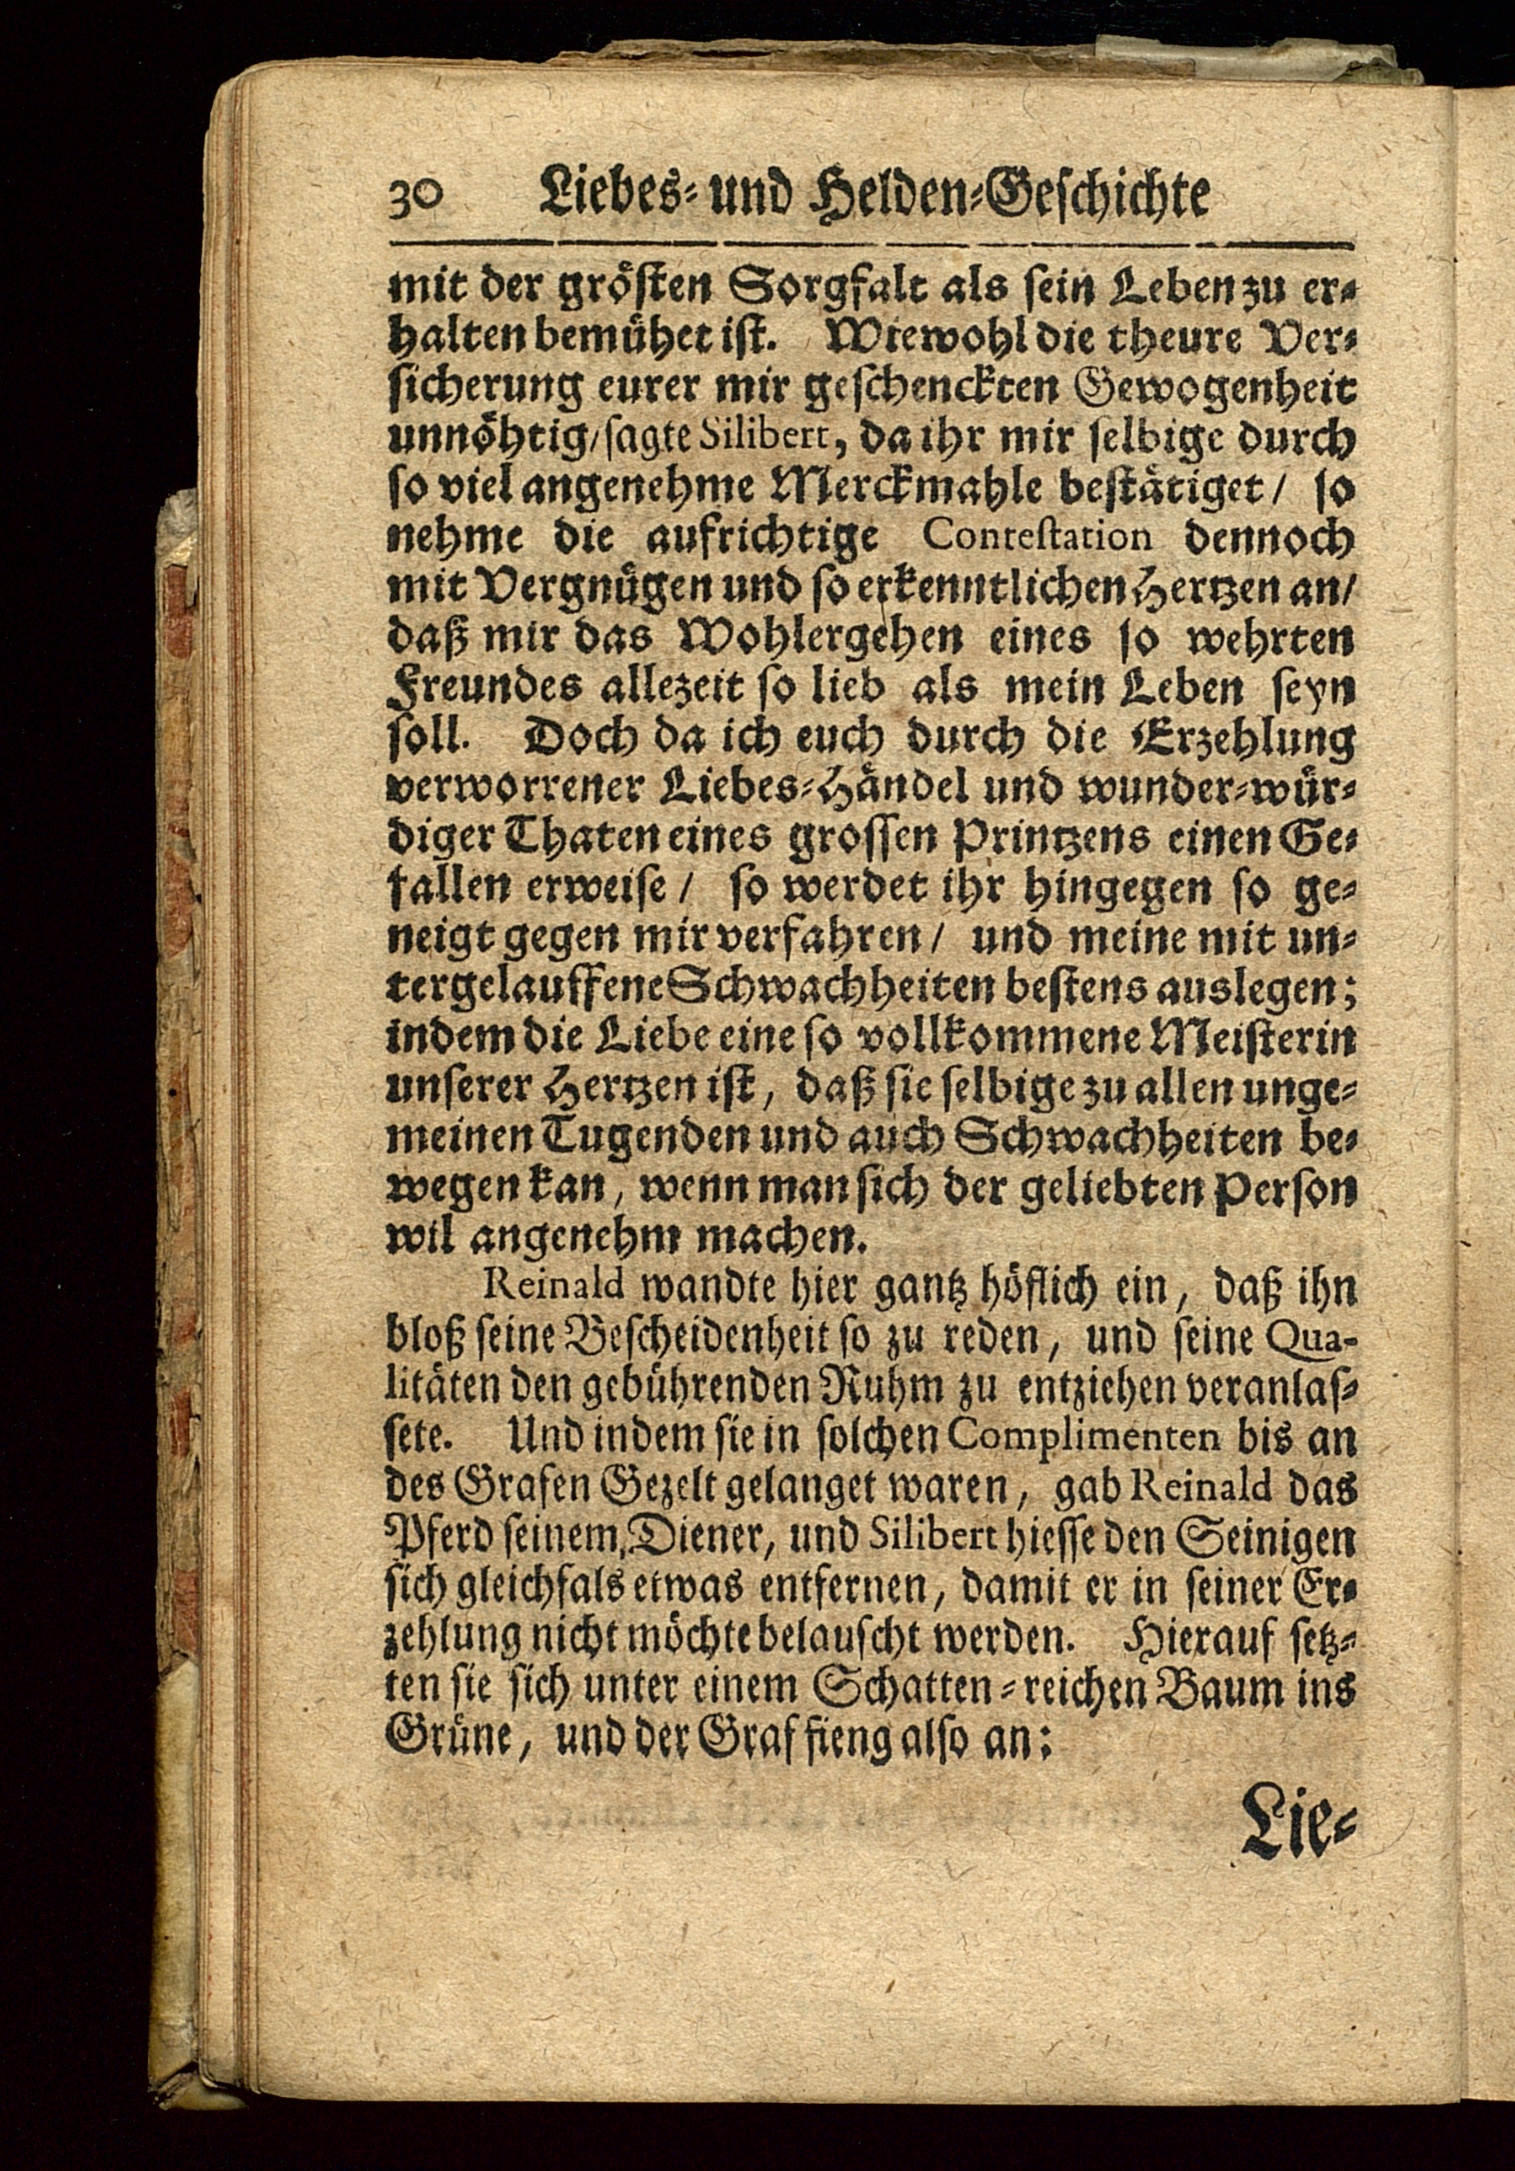 30 Liebes- und Helden-Geschichte
mit der grösten Sorgfalt als sein Leben zu er-
halten bemühet ist. Wiewohl die theure Ver-
sicherung eurer mir geschenckten Gewogenheit
unnöhtig/ sagte Silibert, da ihr mir selbige durch
so viel angenehme Merckmahle bestätiget/ so
nehme die aufrichtige Contestation dennoch
mit Vergnügen und so erkenntlichen Hertzen an/
daß mir das Wohlergehen eines so wehrten
Freundes allezeit so lieb als mein Leben seyn
soll. Doch da ich euch durch die Erzehlung
verworrener Liebes-Händel und wunder-wür-
diger Thaten eines grossen Printzens einen Ge-
fallen erweise/ so werdet ihr hingegen so ge-
neigt gegen mir verfahren/ und meine mit un-
tergelauffene Schwachheiten bestens auslegen;
indem die Liebe eine so vollkommene Meisterin
unserer Hertzen ist, daß sie selbige zu allen unge-
meinen Tugenden und auch Schwachheiten be-
wegen kan, wenn man sich der geliebten Person
wil angenehm machen.
Reinald wandte hier gantz höflich ein, daß ihn
bloß seine Bescheidenheit so zu reden, und seine Qua-
litäten den gebührenden Ruhm zu entziehen veranlas-
sete. Und indem sie in solchen Complimenten bis an
des Grafen Gezelt gelanget waren, gab Reinald das
Pferd seinem Diener, und Silibert hiesse den Seinigen
sich gleichfals etwas entfernen, damit er in seiner Er-
zehlung nicht möchte belauscht werden. Hierauf setz-
ten sie sich unter einem Schatten-reichen Baum ins
Grüne, und der Graf fieng also an:
Lie-